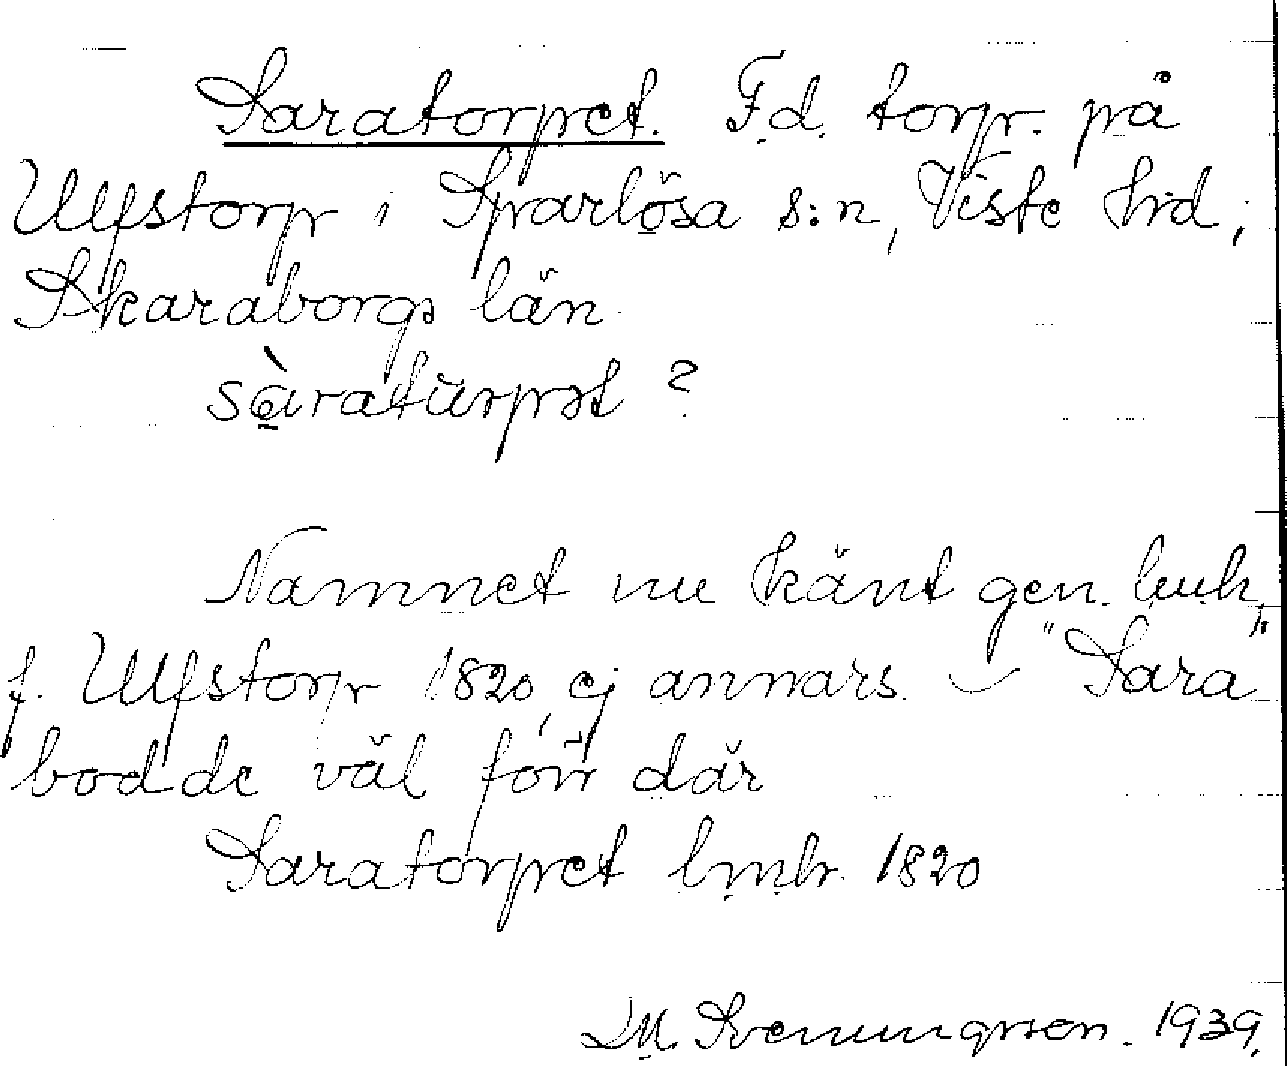 Saratorpet. F.d. torp. på
Ulfstorp i Sparlösa s:n, Viste hrd,
Skaraborgs län.
sàraturpət ?
Namnet nu känt gen.
f. Ulfstorp 1820, ej annars. – "Sara"
bodde väl förr där
Saratorpet lmb. 1820
M. Svenungsson. 1939.